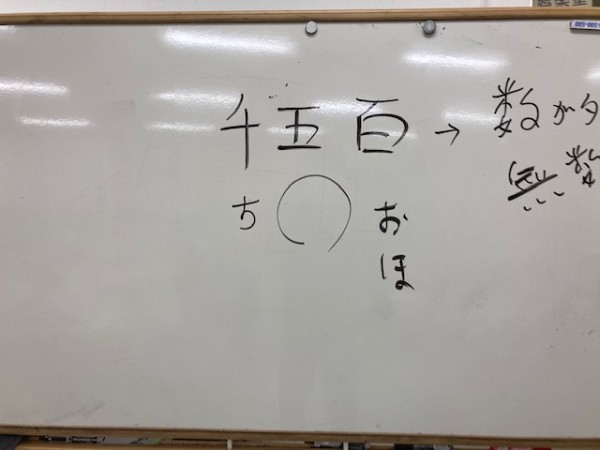 千五百→数が多
無数
ち〇お
ほ